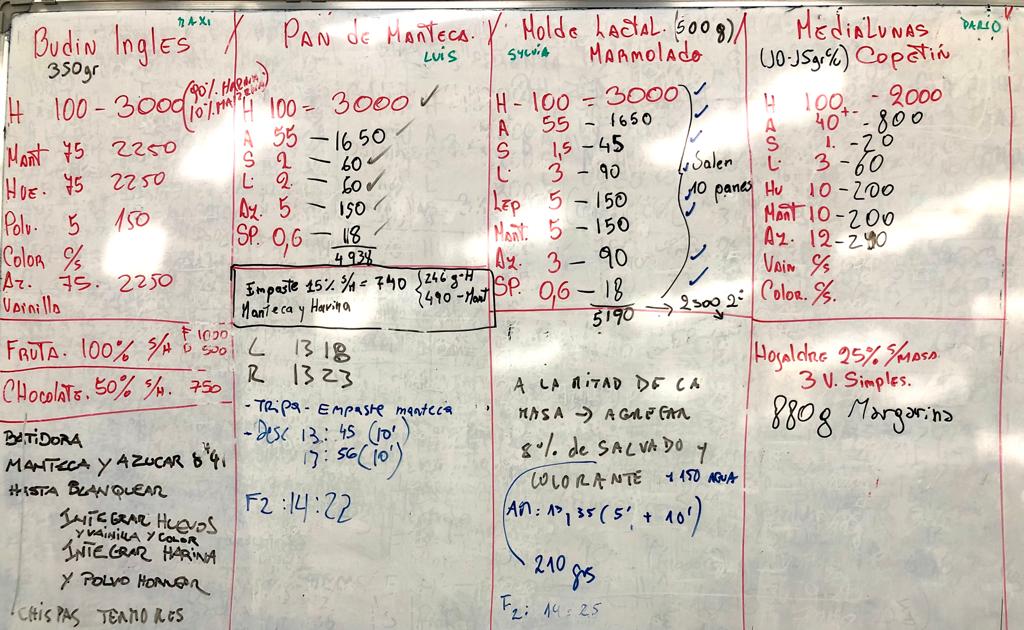 MAXI
Budin Ingles
350gr
H 100 - 3000 (90% HARINA
10% MAIZENA)
Mant 75 2250
Hue. 75 2250
Polv. 5 150
Color c/s
Az. 75. 2250
Vainilla
FRUTA. 100% s/H 1000
500
CHocolate. 50% s/H. 750
BATIDORA
MANTECA Y AZUCAR
HASTA BLANQUEAR
INTEGRAR HUEVOS
Y VAINILLA Y COLOR
INTEGRAR HARINA
Y POLVO HORNEAR
CHISPAS
Pan de Manteca.
LUIS
H 100 = 3000 ✓
A 55 - 1650 ✓
S 2 - 60 ✓
L. 2. - 60 ✓
Az. 5 - 150 ✓
SP. 0,6 - 18 ✓
4938
Empaste 15% s/M = 740 {246 g-H
Manteca y Harina {490 - Mant
L 1318
R 1323
- TRIPA - EMPASTE manteca
- Desc 13:45 (10')
13:56 (10')
F2: 14:22
Molde Lactal. (500g)
SYLVIA MARMOLADO
H - 100 = 3000 ✓
A 55 - 1650 ✓
S 1,5 - 45 ✓
L. 3 - 90 ✓
Lep 5 - 150 ✓
Mant. 5 - 150 ✓
Az. 3 - 90 ✓
SP. 0,6 - 18 ✓
Salen
10 panes
5190 → 2500
A LA MITAD DE LA
MASA → AGREGAR
8% de SALVADO y
COLORANTE + 150 AGUA
AM: 13,35 (5' + 10')
210 grs
F2: 14:25
DARIO
MediaLunas
(10-15gr c/u) Copetin
H 100 - 2000
A 40+- - 800
S 1. - 20
L. 3 - 60
Hu 10 - 200
Mant 10 - 200
Az. 12 - 240
Vain c/s
Color. c/s.
Hojaldre 25% s/MASA
3 V. Simples.
880g Margarina